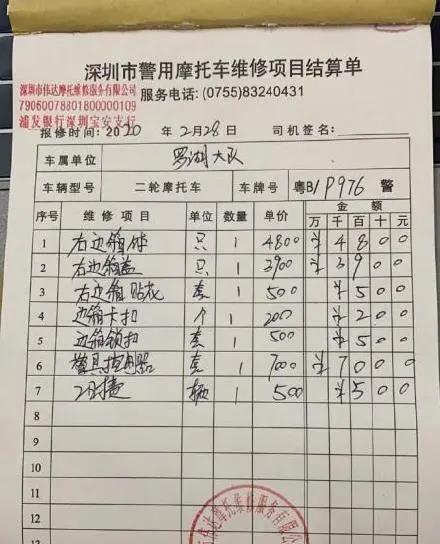 深圳市警用摩托车维修项目结算单
深圳市伟达摩托维修服务有限公司
79060078801800000109
浦发银行深圳宝安支行
服务电话: (0755)83240431
报修时间: 2020 年 2月28日 司机签名:
车属单位 罗湖大队
车辆型号 二轮摩托车 车牌号 粤B1P976 警
序号 维修项目 单位 数量 单价 金额
万 千 百 十 元
1 右边箱体 只 1 4800 ¥ 4 8 0 0
2 右边箱盖 只 1 3900 ¥ 3 9 0 0
3 右边箱贴花 套 1 500 ¥ 5 0 0
4 边箱卡扣 个 1 200 ¥ 2 0 0
5 边箱锁扣 套 1 500 ¥ 5 0 0
6 警具控制器 套 1 7000 ¥ 7 0 0 0
7 工时费 辆 1 500 ¥ 5 0 0
8
9
10
11
12
伟达摩托维修服务有限公